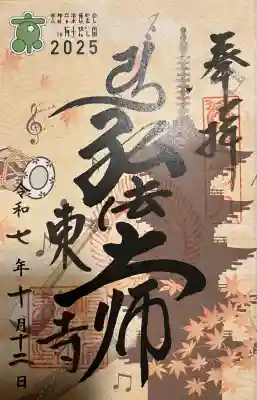 2025
奉拝
弘法大師
東寺
令和七年十月十二日